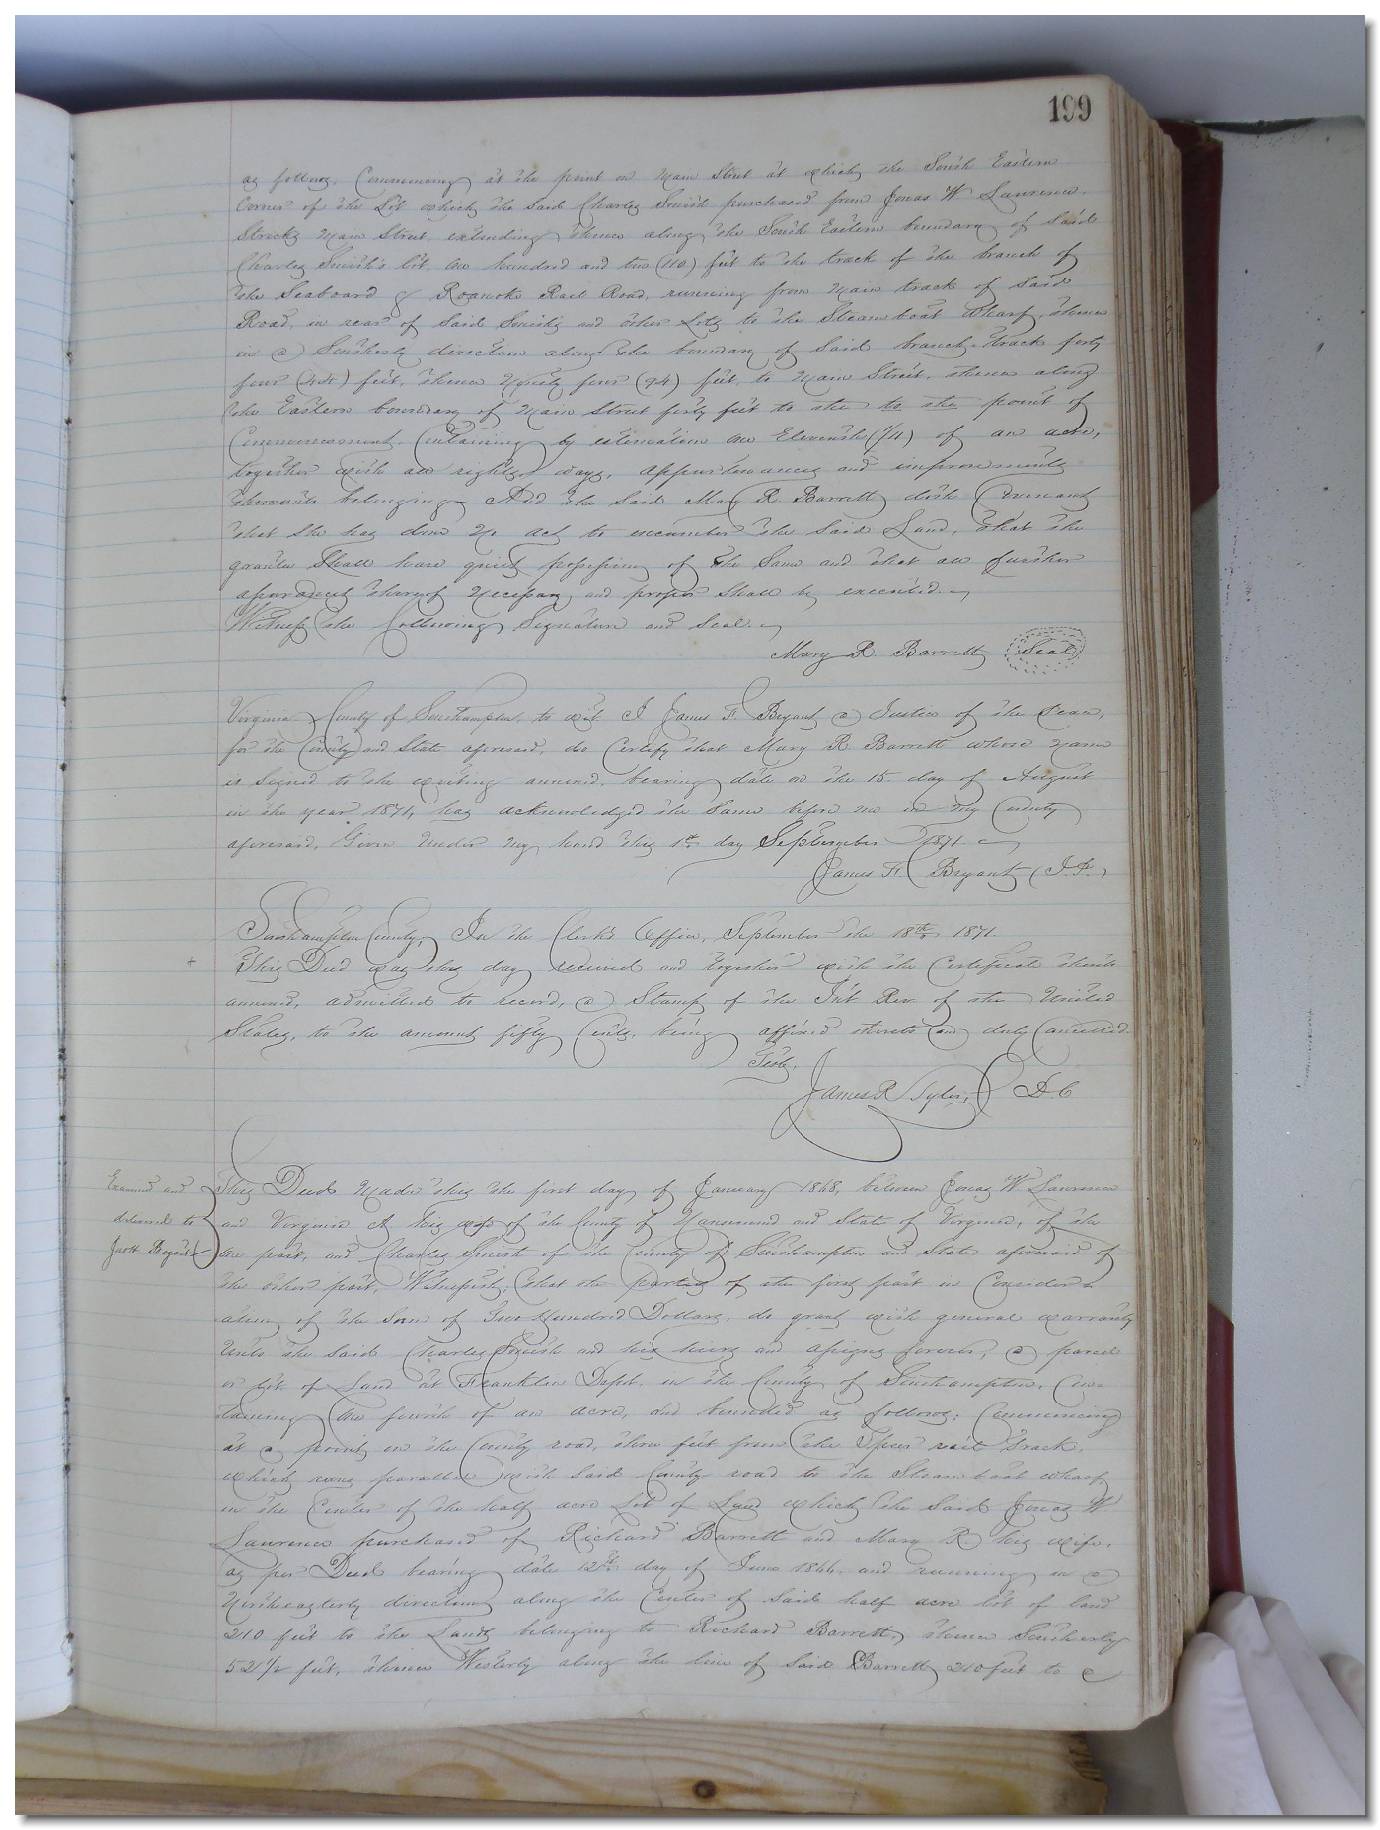 199
as follows, Commencing at the point on Main Street at which the South Eastern
Corner of the Lot which the said Charles Smith purchased from Jonas W Lawrence
Strikes Main Street, extending thence along the South Eastern boundary of said
Charles Smith's lot, one hundred and ten (110) feet to the track of the branch of
the Seaboard & Roanoke Rail Road, running from Main track of said
Road, in rear of said Smith's and other Lots to the Steam boat Wharf, thence
in a Southerly direction along the boundary of said branch track forty
four (44) feet, thence Ninety four (94) feet, to Main Street, thence along
the Eastern boundary of Main Street forty feet to the to the point of
Commencement. Containing by estimation one Eleventh (1/11) of an acre,
together with all rights, ways, appurtenances and improvements
thereunto belonging. And the said Mary R. Barrett doth Covenant
that she has done no act to encumber the said Land, that the
grantee shall have quiet possession of the same and that all further
assurances thereof necessary and proper shall be executed.
Witness the following Signature and Seal.
Mary R. Barrett Seal
Virginia County of Southampton, to wit I James F. Bryant a Justice of the Peace,
for the County and State aforesaid, do Certify that Mary R Barrett whose name
is signed to the writing annexed, bearing date on the 15 day of August
in the year 1871, has acknowledged the same before me in my County
aforesaid, Given under my hand this 1st day September 1871
James F. Bryant (J.P.)
Southampton County, In the Clerk's Office, September the 18th 1871.
This Deed was this day received and together with the Certificate thereto
annexed, admitted to record, a Stamp of the Int Rev. of the United
States, to the amount fifty Cents, being affixed thereto and duly Cancelled.
Teste,
James R Tyler, D.C
Examined and
delivered to
Bryant
This Deed made this the first day of January 1868, between Jonas W Lawrence
and Virginia A his wife of the County of Nansemond and State of Virginia, of the
one part, and Charles Smith of the County of Southampton and State aforesaid of
the other part, Witnesseth, that the parties of the first part in Consider
ation of the Sum of Two Hundred Dollars, do grant with general warranty
unto the said Charles Smith and his heirs and assigns forever, a parcel
or lot of Land at Franklin Depot, in the County of Southampton, Con
taining One fourth of an acre, and bounded as follows: Commencing
at a point on the County road, three feet from the Spur rail track,
which runs parallel with said County road to the Steam boat wharf
in the Center of the half acre Lot of Land which the said Jonas W
Lawrence purchased of Richard Barrett and Mary R his wife,
as per Deed bearing date 12th day of June 1866, and running in a
Northeasterly direction along the Center of said half acre lot of land
210 feet to the Lands belonging to Richard Barrett, thence Southerly
52 1/2 feet, thence Westerly along the line of said Barrett 210 feet to a